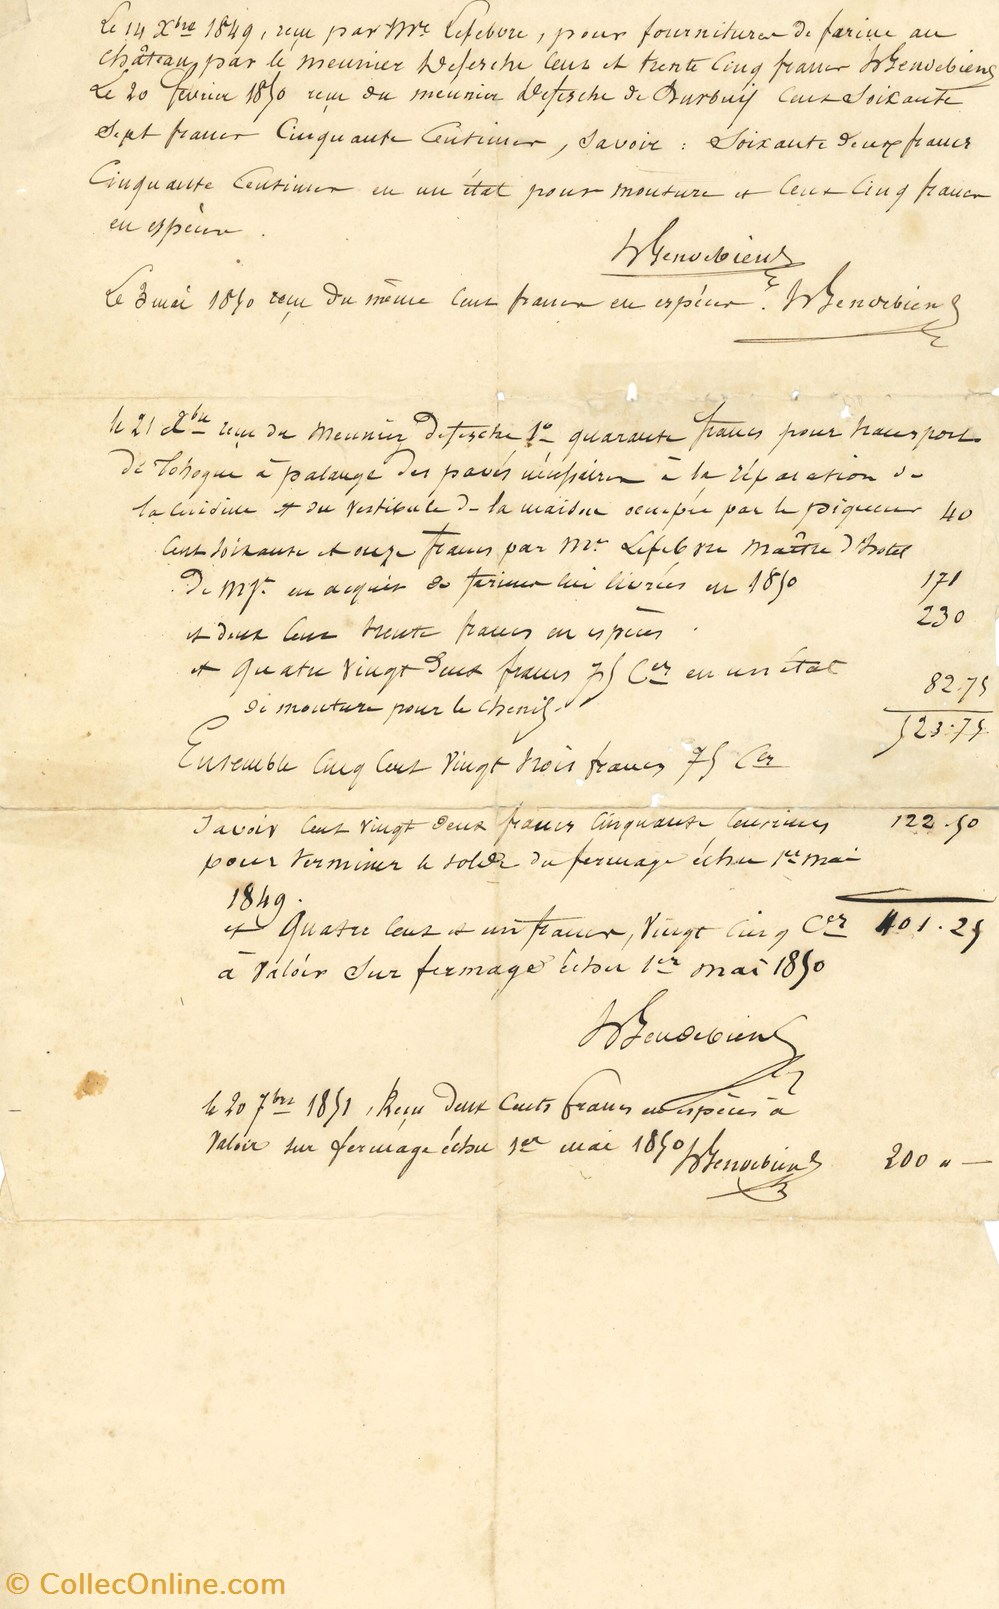 Le 14 Xbre 1849, reçu par Mr Lefebvre, pour fourniture de farine au
château, par le meunier Deferche Cent et trente Cinq francs WGendebien
Le 20 février 1850 reçu du meunier Deferche de Durbuy Cent Soixante
Sept francs Cinquante Centimes, Savoir : Soixante deux francs
Cinquante Centimes en un état pour mouture et Cent Cinq francs
en espèces .
WGendebien
Le 3 mai 1850 reçu du même Cent francs en espèces . WGendebien
le 21 Xbre reçu du Meunier Deferche 1° quarante francs pour transport
de Tohogne à palange des pavés nécessaires à la réparation de
la cuisine et du vestibule de la maison occupée par le piqueur 40
Cent soixante et onze francs par Mr Lefebvre maître d'hotel
de Mgr en acquit de farines lui livrées en 1850 171
et deux Cent trente francs en espèces . 230
et Quatre Vingt deux francs 75 Ces en un état
de mouture pour le chenil . 82.75
523.75
Ensemble Cinq Cent Vingt trois francs 75 Ces
Savoir Cent Vingt deux francs Cinquante Centimes 122.50
pour terminer le solde du fermage échu 1er mai
1849.
et Quatre Cent et un francs, Vingt Cinq Ces 401.25
à Valoir Sur fermage échu 1er mai 1850
WGendebien
le 20 7bre 1851, Reçu deux Cents francs en espèces à
Valoir sur fermage échu 1er mai 1850 WGendebien 200 " —
© CollecOnline.com